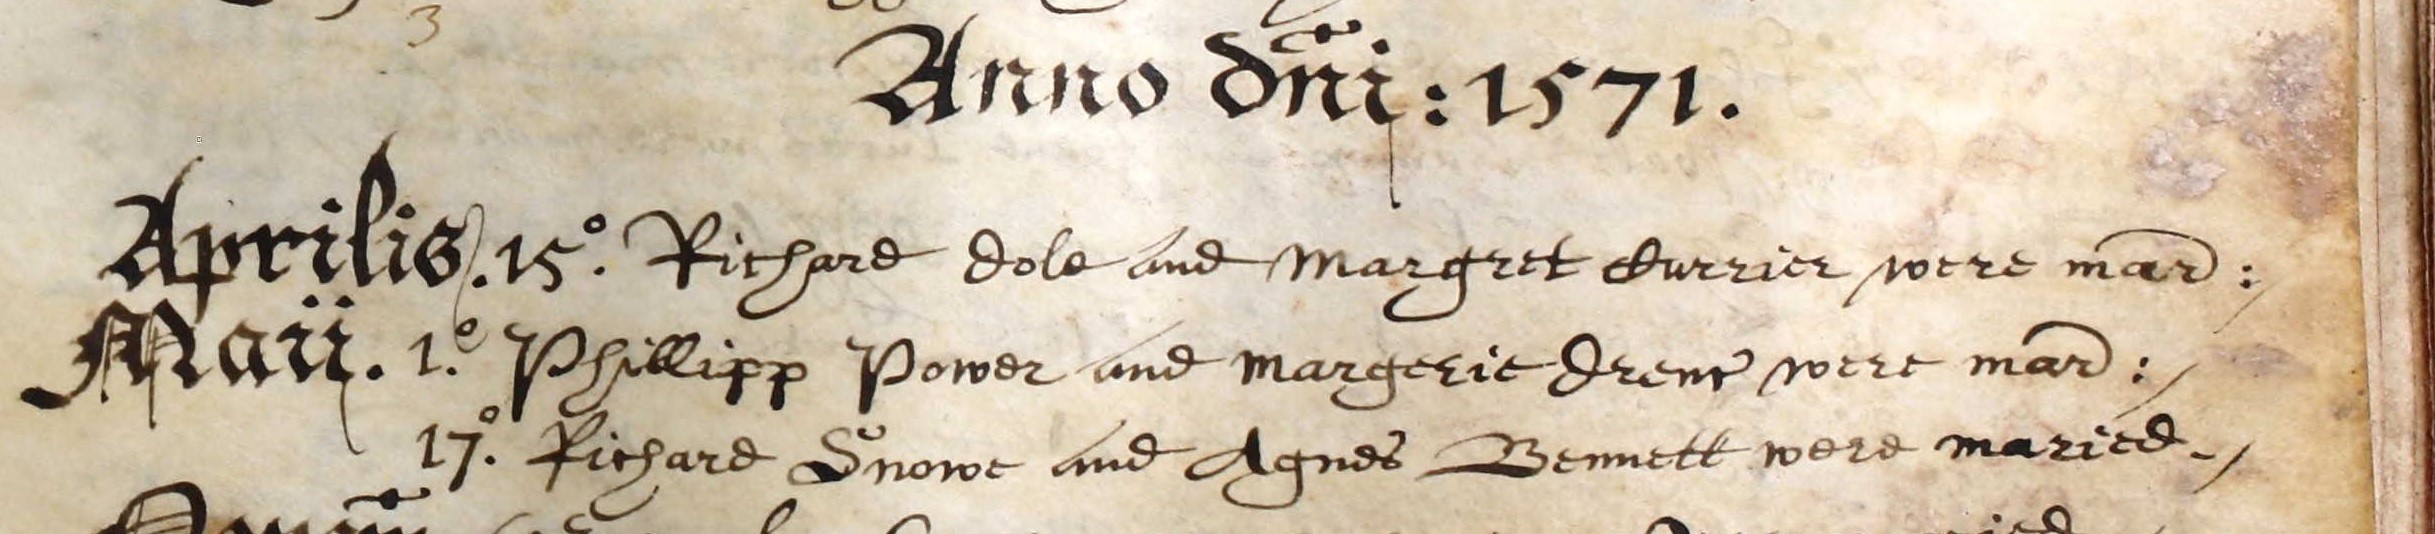 3
Anno dñi : 1571.
Aprilis. 15°. Richard dole and Margret Currier were mar :
Maii. 1.° Phillipp Power and Margerie were mar :
17°. Richard Snowe and Agnes Bennett were maried.